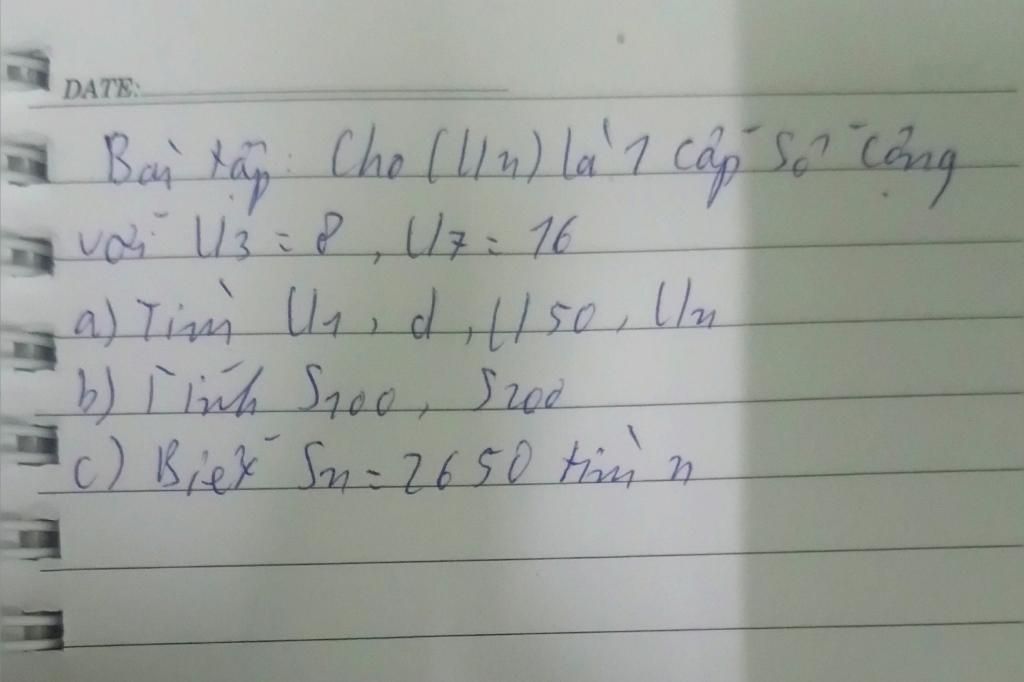 DATE:
Bài tập: Cho (Un) là 1 cấp số cộng
với U3 = 8, U7 = 16
a) Tìm U1, d, U50, Un
b) Tính S100, S200
c) Biết Sn = 2650 tìm n